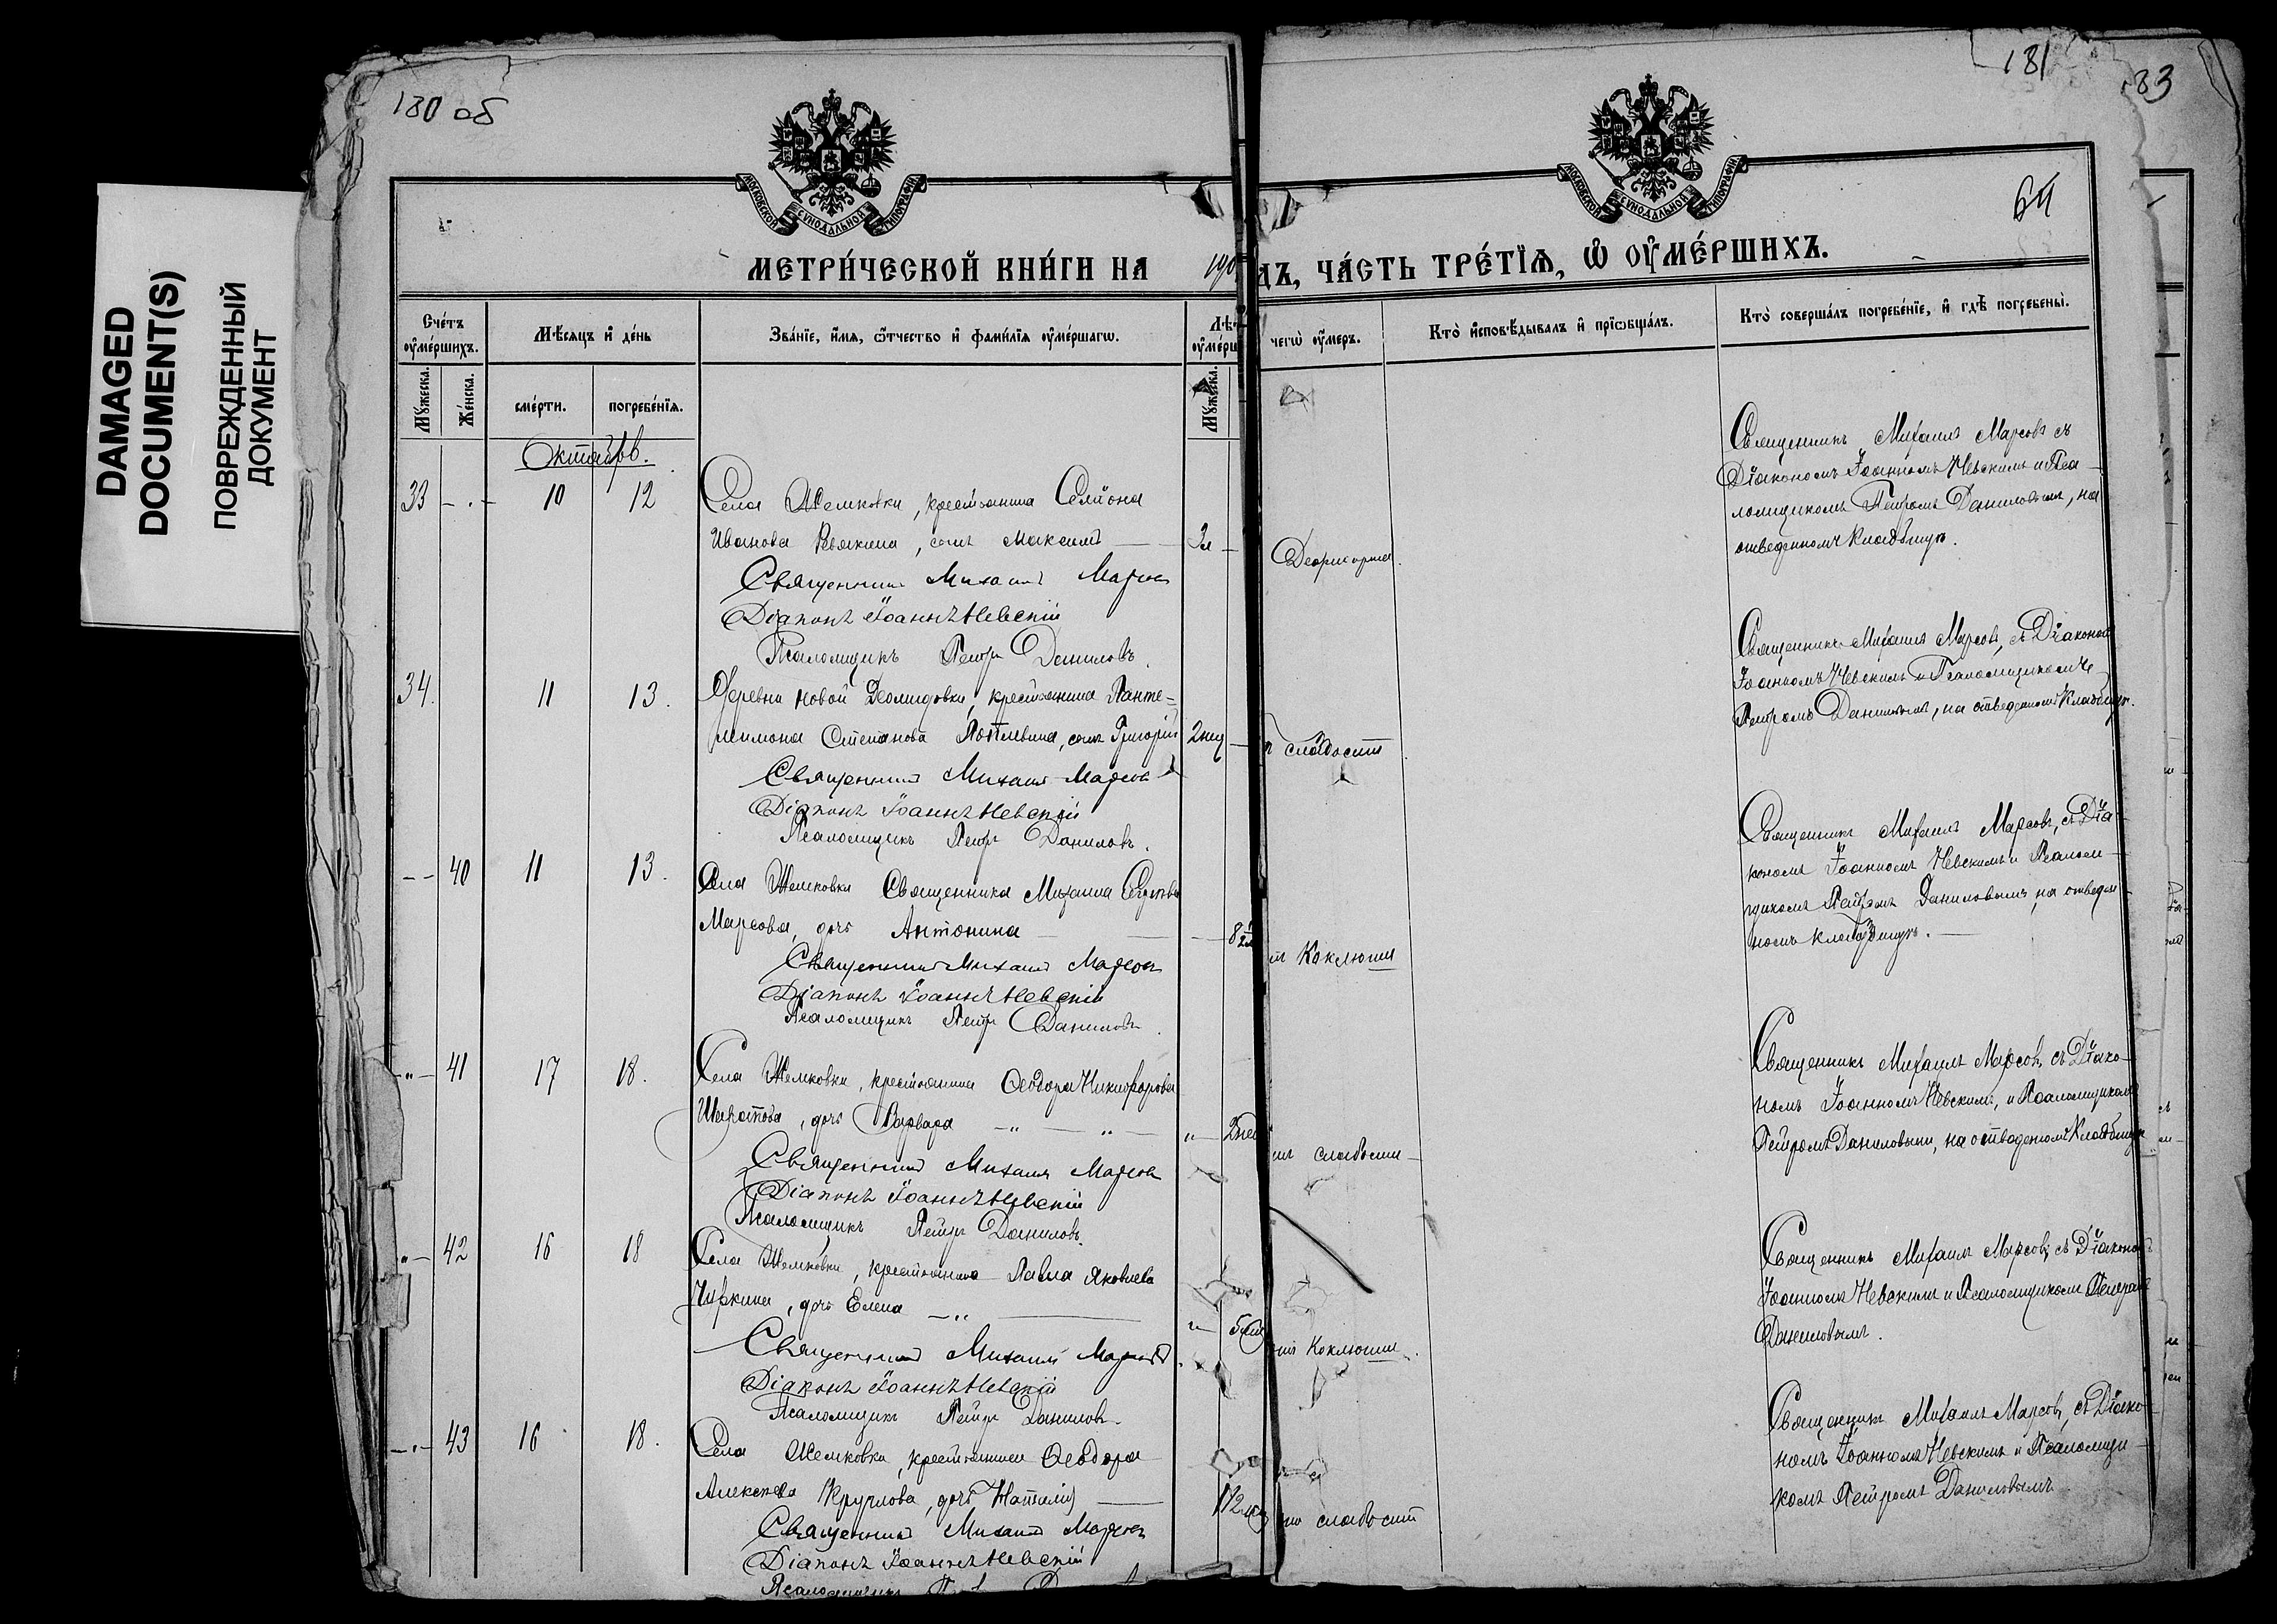 180 об
181
83
64
DAMAGED
DOCUMENT(S)
ПОВРЕЖДЕННЫЙ
ДОКУМЕНТ
МОСКОВСКОЙ СУНОДАЛЬНОЙ ТИПОГРАФІИ
МОСКОВСКОЙ СУНОДАЛЬНОЙ ТИПОГРАФІИ
МЕТРИ́ЧЕСКОЙ КНИ́ГИ НА 190
ДЪ, ЧА́СТЬ ТРЕ́ТЇѦ, Ѡ҆ ОУ҆МЕ́РШИХЪ.
Сче́тъ оу҆ме́ршихъ.
Мꙋжеска.
Же́нска.
Мѣ́сѧцъ и҆ де́нь
сме́рти.
погребе́нїѧ.
Зва́нїе, и҆́мѧ, ѻ҆́тчество и҆ фами́лїѧ оу҆ме́ршагѡ.
Лѣ́
оу҆ме́рш
Мꙋжеска.
чегѡ̀ оу҆́меръ.
Кто̀ и҆сповѣ́дывалъ и҆ прїѡбща́лъ.
Кто̀ соверша́лъ погребе́нїе, и҆ гдѣ̀ погребены̀.
Октябрь.
33 10 12 Села Жемковки, крестьянина Симеона
Иванова сынъ Максимъ 3л
Священникъ Михаилъ Марсовъ
Діаконъ Іоаннъ Невскій
Псаломщикъ Петръ Даниловъ.
Священникъ Михаилъ Марсовъ съ
Діакономъ Іоанномъ Невскимъ и Пса-
ломщикомъ Петромъ Даниловымъ, на
отведенномъ кладбищѣ.
34. 11 13. Деревни Новой Демидовки, крестьянина Панте-
леимона Степанова сынъ Григорій 2нед
слабости
Священникъ Михаилъ Марсовъ
Діаконъ Іоаннъ Невскій
Псаломщикъ Петръ Даниловъ.
Священникъ Михаилъ Марсовъ, съ Діакономъ
Іоанномъ Невскимъ и Псаломщикомъ
Петромъ Даниловымъ, на отведенномъ Кладбищѣ.
40 11 13. Села Жемковки Священника Михаила
Марсова, дочь Антонина
Коклюша
Священникъ Михаилъ Марсовъ
Діаконъ Іоаннъ Невскій
Псаломщикъ Петръ Даниловъ
Священникъ Михаилъ Марсовъ, съ Діа-
кономъ Іоанномъ Невскимъ и Псалом-
щикомъ Петромъ Даниловымъ, на отведен
номъ кладбищѣ.
41 17 18. Села Жемковки, крестьянина Ѳеодора Никифорова
дочь Варвара 2нед
слабости
Священникъ Михаилъ Марсовъ
Діаконъ Іоаннъ Невскій
Псаломщикъ Петръ Даниловъ.
Священникъ Михаилъ Марсовъ, съ Діако-
номъ Іоанномъ Невскимъ, и Псаломщикомъ
Петромъ Даниловымъ, на отведенномъ Кладбищѣ
42 16 18 Села Жемковки, крестьянина Павла Яковлева
Чуркина, дочь Елена
Коклюша
Священникъ Михаилъ Марсовъ
Діаконъ Іоаннъ Невскій
Псаломщикъ Петръ Даниловъ.
Священникъ Михаилъ Марсовъ, съ Діакономъ
Іоанномъ Невскимъ и Псаломщикомъ Петромъ
Даниловымъ.
43 16 18. Села Жемковки, крестьянина Ѳеодора
Алексѣева Круглова, дочь
слабости
Священникъ Михаилъ Марсовъ
Діаконъ Іоаннъ Невскій
Псаломщикъ
Священникъ Михаилъ Марсовъ, съ Діако-
номъ Іоанномъ Невскимъ и Псаломщи-
комъ Петромъ Даниловымъ